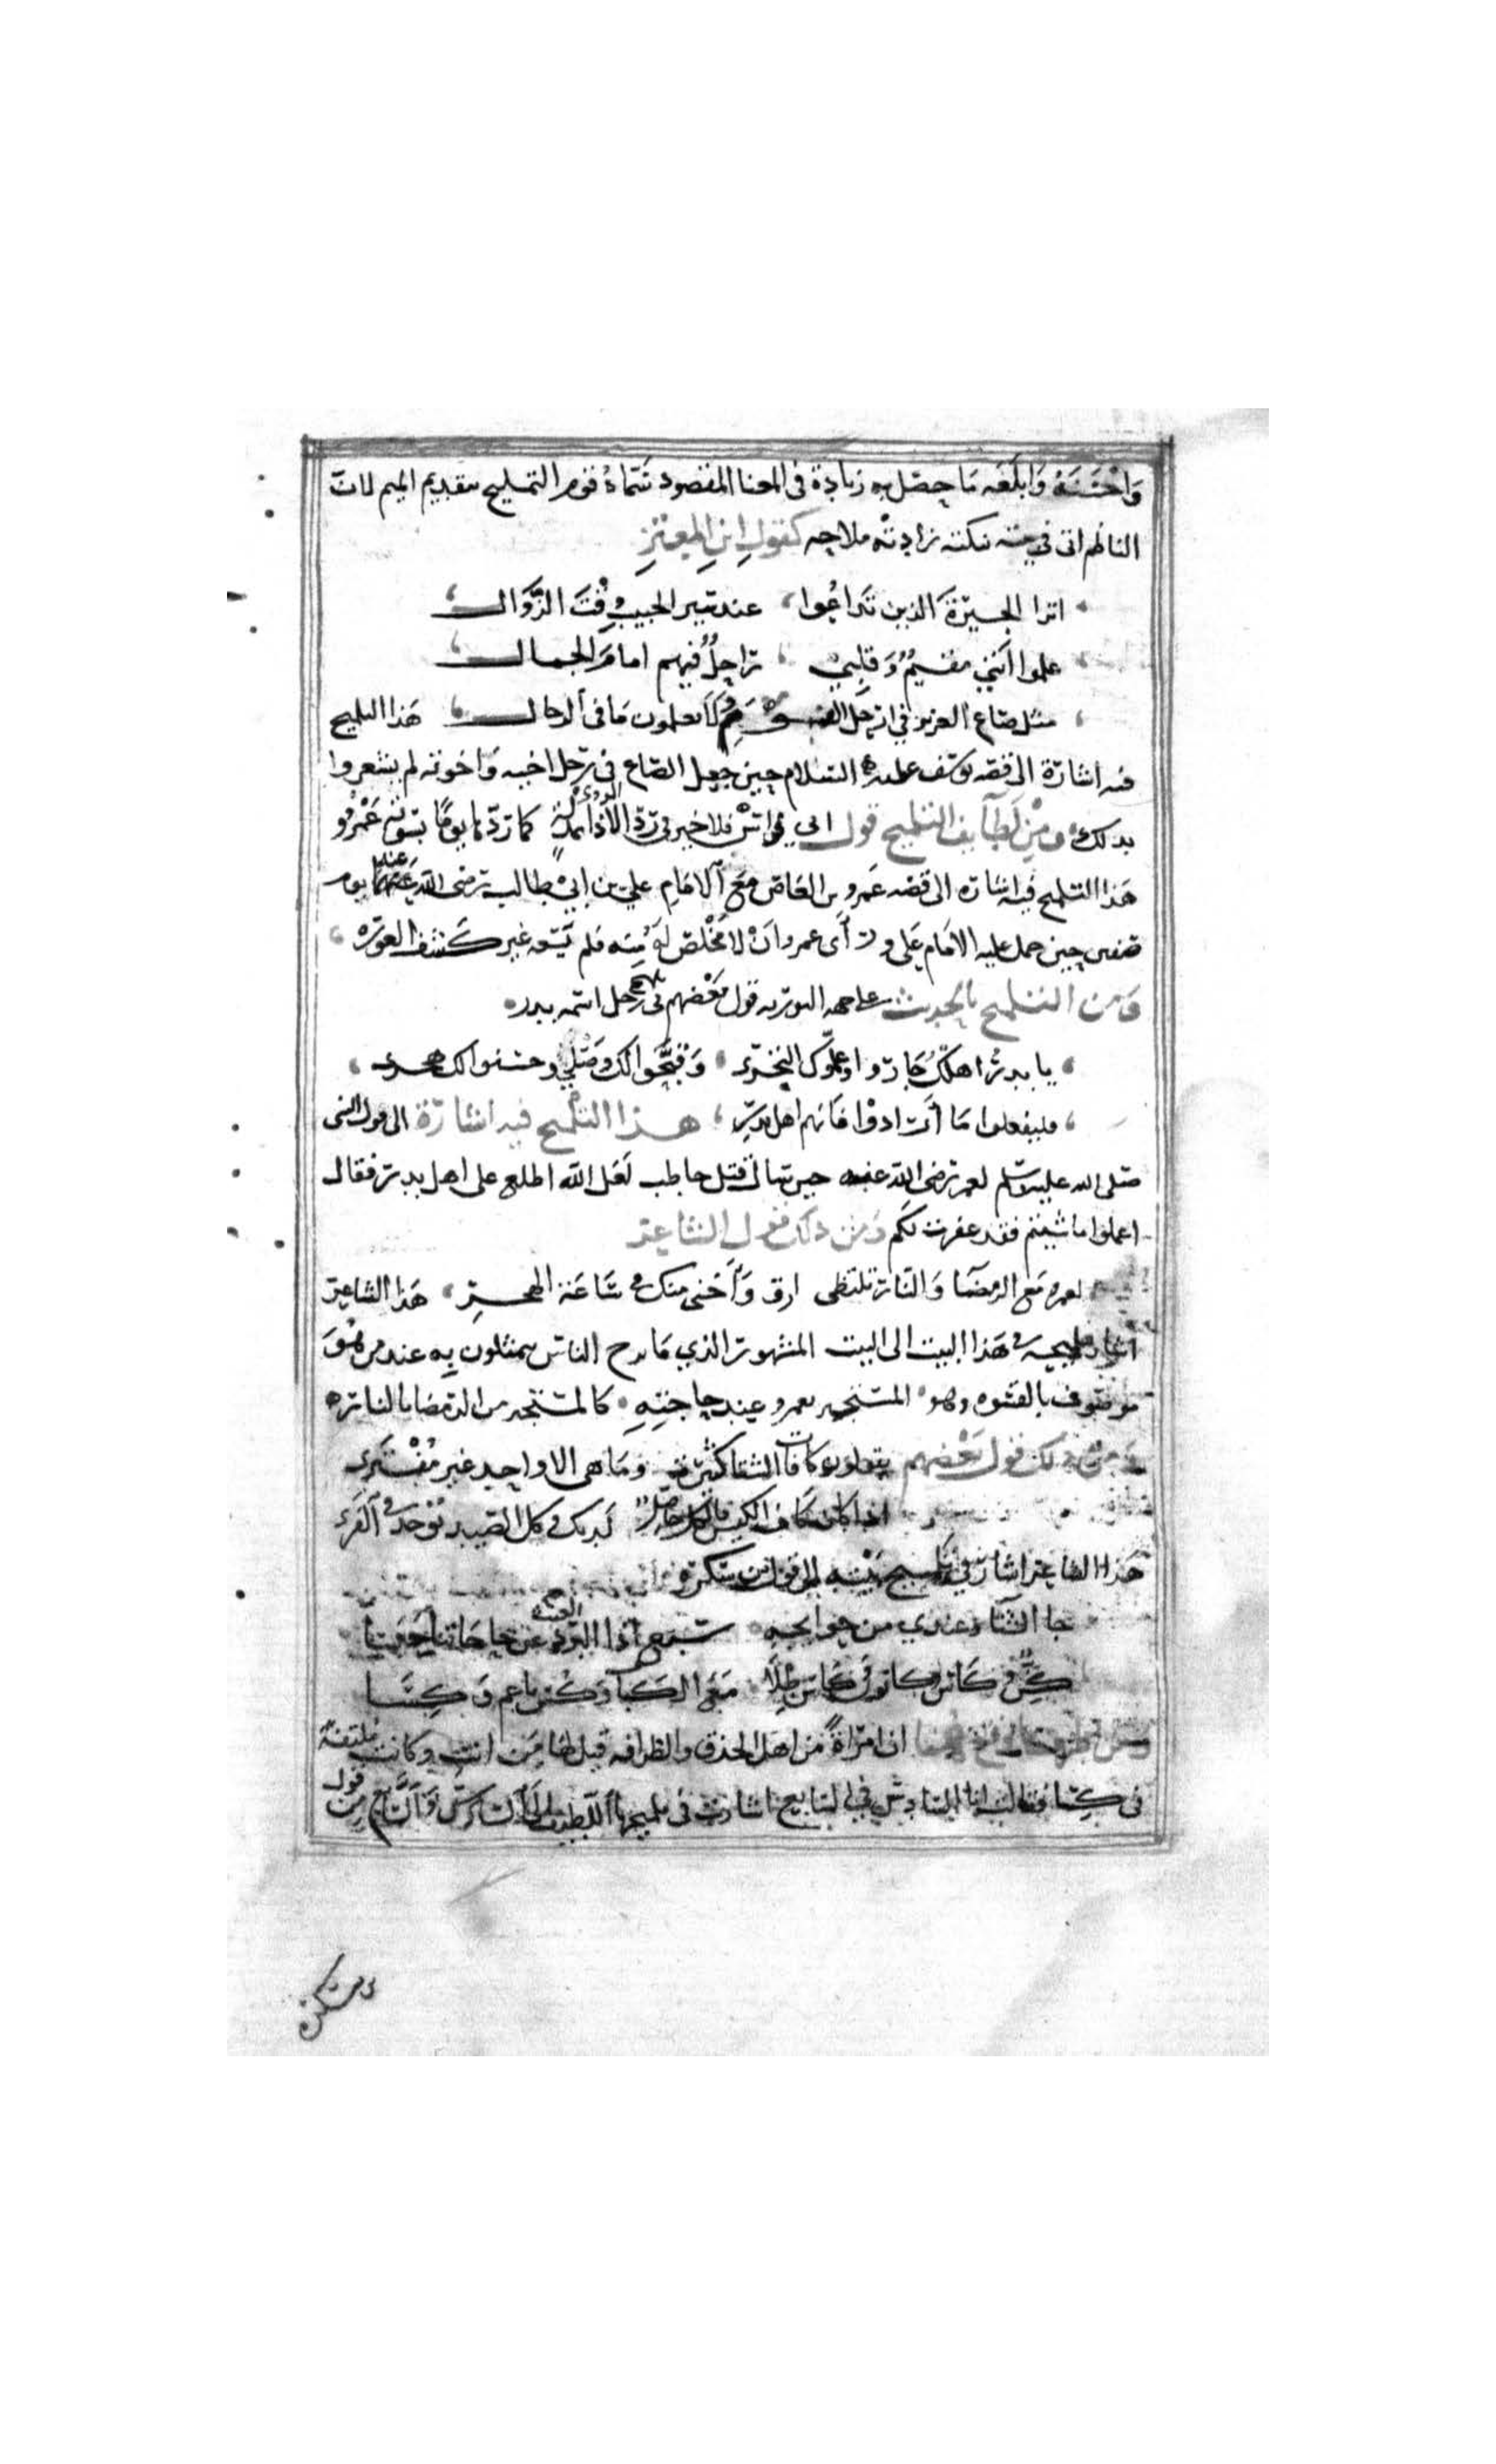 وَاحْسَنَهُ وَابلَغَه مَا حصّل به زيادة فى المعنا المقصود سَمّاهُ قوم التمليح بتقديم الميم لان
الناظم اتى في بيته نكته زادته ملاحه كقول ابن المعتز
اترا الجيرَة الذين تداعُوا عند سير الحبيب وقْتَ الزَّوَال
علموا انني مقيمٌ وَقلبي راحلٌ فيهم امام الجمال
مثل صاع العزيز في ارحل القوم وَلا يعلمون مَا فى الرحال هَذا التلميح
فيه اشارَة الى قصه يوسف عليه السلام حين جعل الصاع فى رحل اخيه وَاخوته لم يشعروا
بذلك ومِنْ لَطَآيف التلميح قول ابي فراس فلا خير فى رَدّ الأذا بمذلةٍ كما رَدّها يومًا بسَوْته عَمْرُو
هَذا التلميح فيه اشاره الى قصه عَمرو بن العَاص مَعَ الامَام علي بن ابي طالب رَضى الله عَنهما يوم
صفين حين حمل عليه الامَام عَلى ورَأى عمرو انْ لا مَخْلص لَهُ مِنه فلم يَسَعه غير كَشف العورَه
وَمن التلميح بالحديث على جهه التوريه قول بَعْضهم فى رَجل اسمه بدر
يا بدرُ اهلكَ جَارُوا وعلّموك التجرّي وَقبَّحوا لك وَصْلي وحسّنوا لك هجري
فليفعلوا مَا أرَادوْا فانهم اهل بدرِ هذا التلْميح فيه اشارَة الى قول النبى
صَلى الله عليه وسلم لعمر رَضى الله عنه حين سَال قتل حاطب لعَل الله اطلع على اهل بدر فقال
اعملوا ما شيتم فقد غفرت لكم وَمن ذلك قول الشاعر
لعمرو مَع الرمضَا وَالنّار تلتظى ارق وَأَحْنى منك فى سَاعَة الهجرِ هَذا الشاعر
اشار بتلميحه فى هَذا البيت الى البيت المشهور الذي مَا برح الناس يتمثلون به عند من هُوَ
موصوف بالقسوه وهو المستجير بعمرو عند حاجتهِ كالمستجير من الرمضَا بالنار
وَمن ذلك قول بَعْضهم يقولون كافات الشتا كثيرة ومَا هى الا واحِد غير مُفْترَى
اذا كان كَاف الكيس فالكل حاصل لديك فى كل الصيد يوجد فى الفرَى
هَذا الشاعر اشار في تلميح بَيْته الى قول ابن سكره
جا الشتا وعندي من حوايجه سَبع اذا القطر عن حاجاتنا حبسا
كِنّ وكاس وكانون وكاس طلا مَعَ الكَبابِ وكُس ناعم وَكِسَا
ان امرَاةً من اهل الحذق والظرافه قيل لهَا مَن انت وكانت ملتفةً
فى كِسا فقالت انا السّادِسْ في السّابع اشارت فى تلميحها
قول
ابن سكره